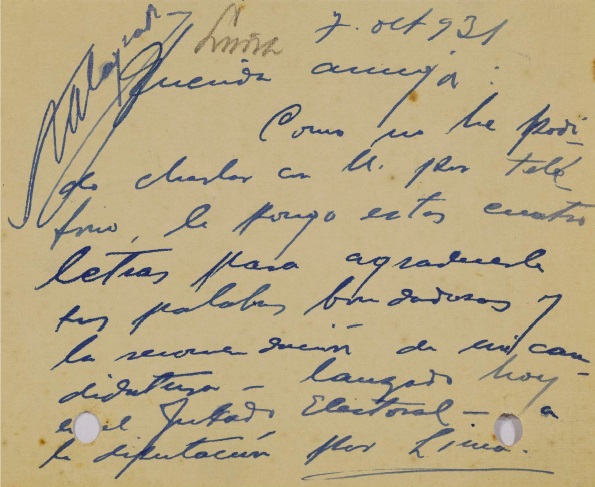 Lima
7. oct 931
Querida amiga:
Como no he podi-
do charlar con U. por telé-
fono, le pongo estas cuatro
letras para agradecerle
sus palabras bondadosas y
la recomendación de mi can-
didatura - lanzado hoy
en el Jurado Electoral - a
la diputación por Lima.